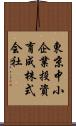 東京中小
企業投資
育成株式
会社